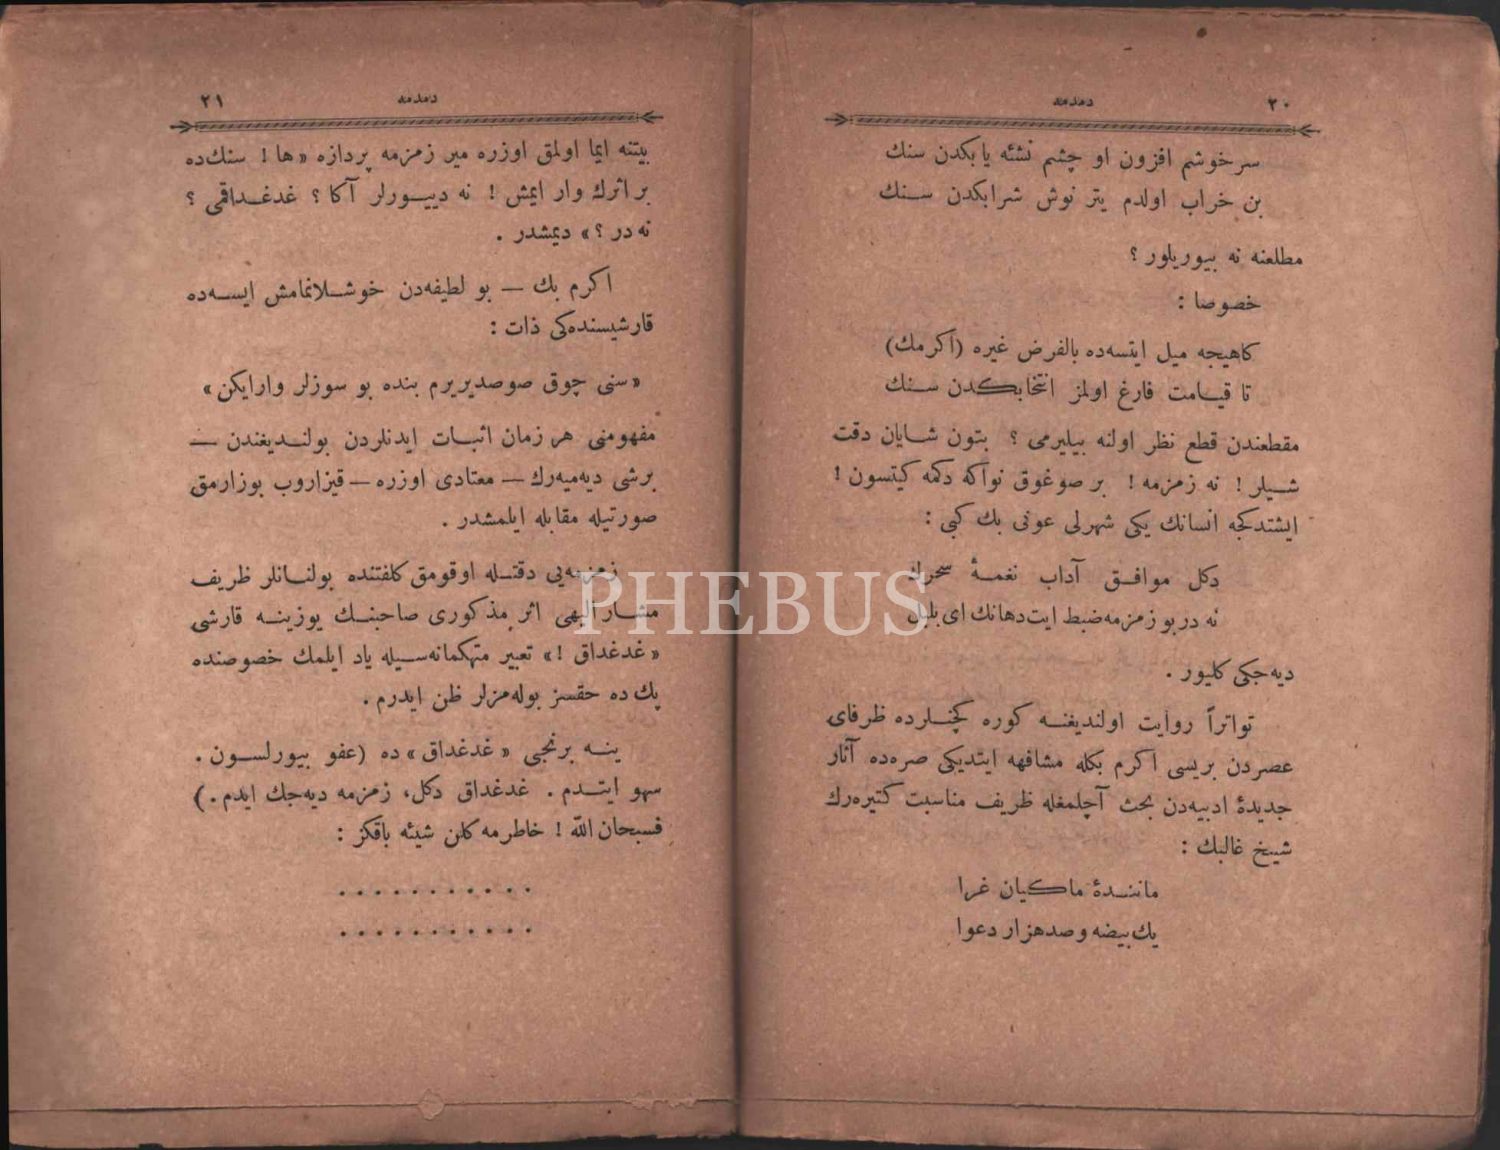 ٢٠
دمدمه
سرخوشم افزون او چشم نشئه یابكدن سنك
بن خراب اولدم یتر نوش شرابكدن سنك
مطلعنه نه بیوریلور ؟
خصوصا :
كاهیجه میل ایتسه‌ده بالفرض غیره (اكرمك)
تا قیامت فارغ اولمز انتخابكدن سنك
مقطعندن قطع نظر اولنه بیلیرمی ؟ بتون شایان دقت
شیلر ! نه زمزمه ! بر صوغوق نواكه دكمه كیتسون !
ایشتدكجه انسانك یكی شهرلی عونی بك كبی :
دكل موافق آداب نغمهٔ سحرك
نه در بو زمزمه ضبط ایت دهانك ای بلبل
دیه‌جكی كلیور .
تواتراً روایت اولندیغنه كوره كچنلرده ظرفای
عصردن بریسی اكرم بكله مشافهه ایتدیكی صره‌ده آثار
جدیدهٔ ادبیه‌دن بحث آچلمغله ظریف مناسبت كتیره‌رك
شیخ غالبك :
مانندهٔ ماكیان غرا
یك بیضه و صدهزار دعوا
٢١
دمدمه
بیتنه ایما اولمق اوزره میر زمزمه پردازه « ها ! سنك‌ده
بر اثرك وار ایمش ! نه دییورلر آكا ؟ غدغداقمی ؟
نه در ؟ » دیمشدر .
اكرم بك — بو لطیفه‌دن خوشلانمامش ایسه‌ده
قارشیسنده‌كی ذات :
« سنی چوق صوصدیریرم بنده بو سوزلر وارایكن »
مفهومنی هر زمان اثبات ایدنلردن بولندیغندن —
برشی دیه‌میه‌رك — معتادی اوزره — قیزاروب بوزارمق
صورتیله مقابله ایلمشدر .
زمزمه‌یی دقتله اوقومق كلفتنده بولنانلر ظریف
مشار الیهی اثر مذكوری صاحبنك یوزینه قارشی
« غدغداق ! » تعبیر متهكمانه‌سیله یاد ایلمك خصوصنده
پك ده حقسز بوله‌مزلر ظن ایدرم .
ینه برنجی « غدغداق » ده (عفو بیورلسون .
سهو ایتدم . غدغداق دكل، زمزمه دیه‌جك ایدم .)
فسبحان اللّه ! خاطرمه كلن شیئه باقكز :
. . . . . . . . . . .
. . . . . . . . . . .
PHEBUS